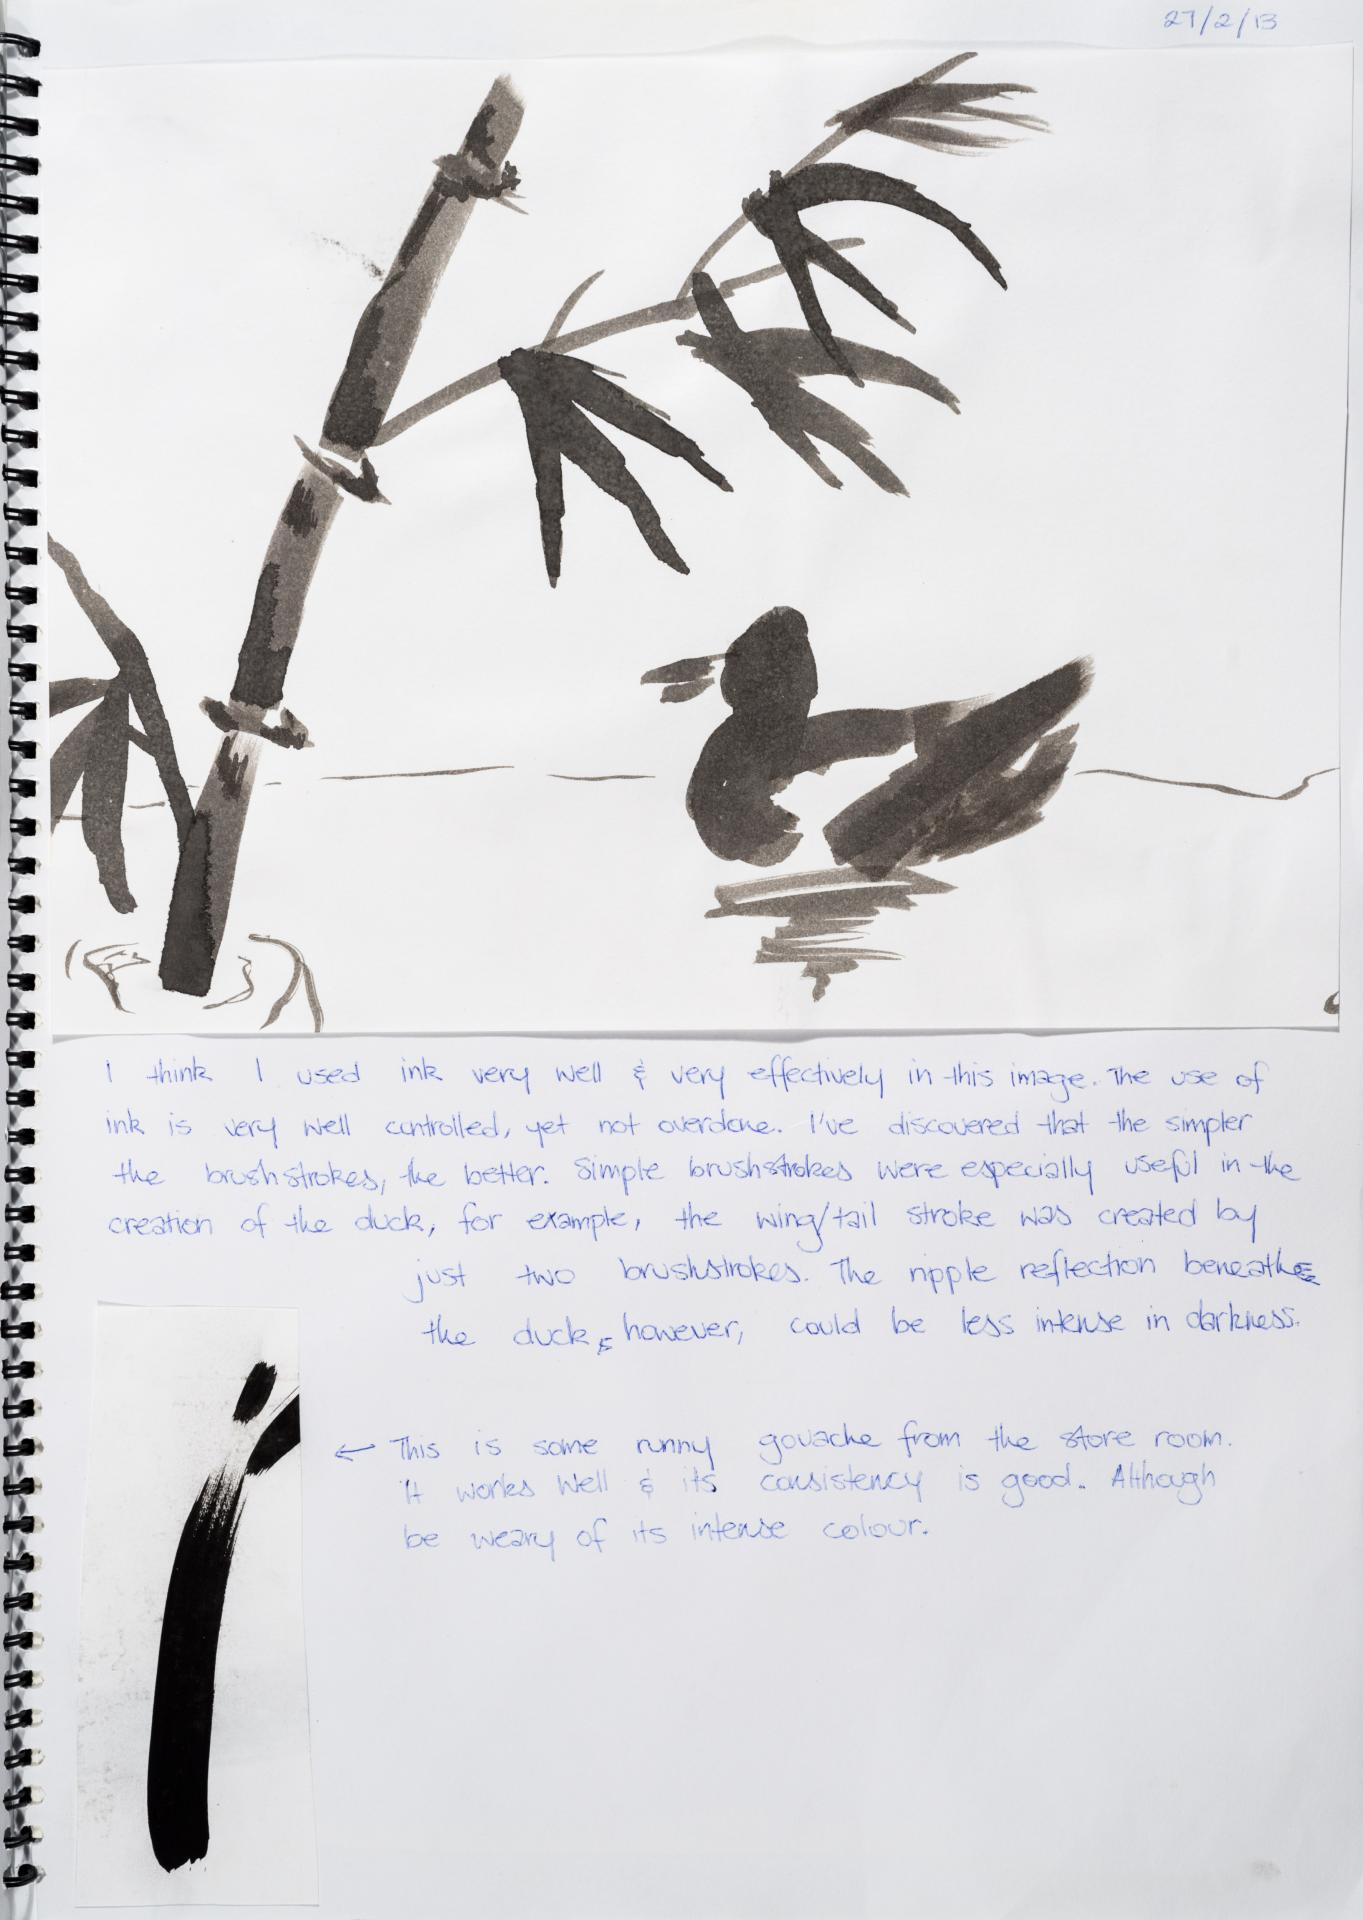 27/2/13
I think I used ink very well & very effectively in this image. The use of
ink is very well controlled, yet not overdone. I've discovered that the simpler
the brushstrokes, the better. Simple brushstrokes were especially useful in the
creation of the duck, for example, the wing/tail stroke was created by
just two brushstrokes. The ripple reflection beneath
the duck, however, could be less intense in darkness.
← This is some runny gouache from the store room.
It works well & its consistency is good. Although
be weary of its intense colour.